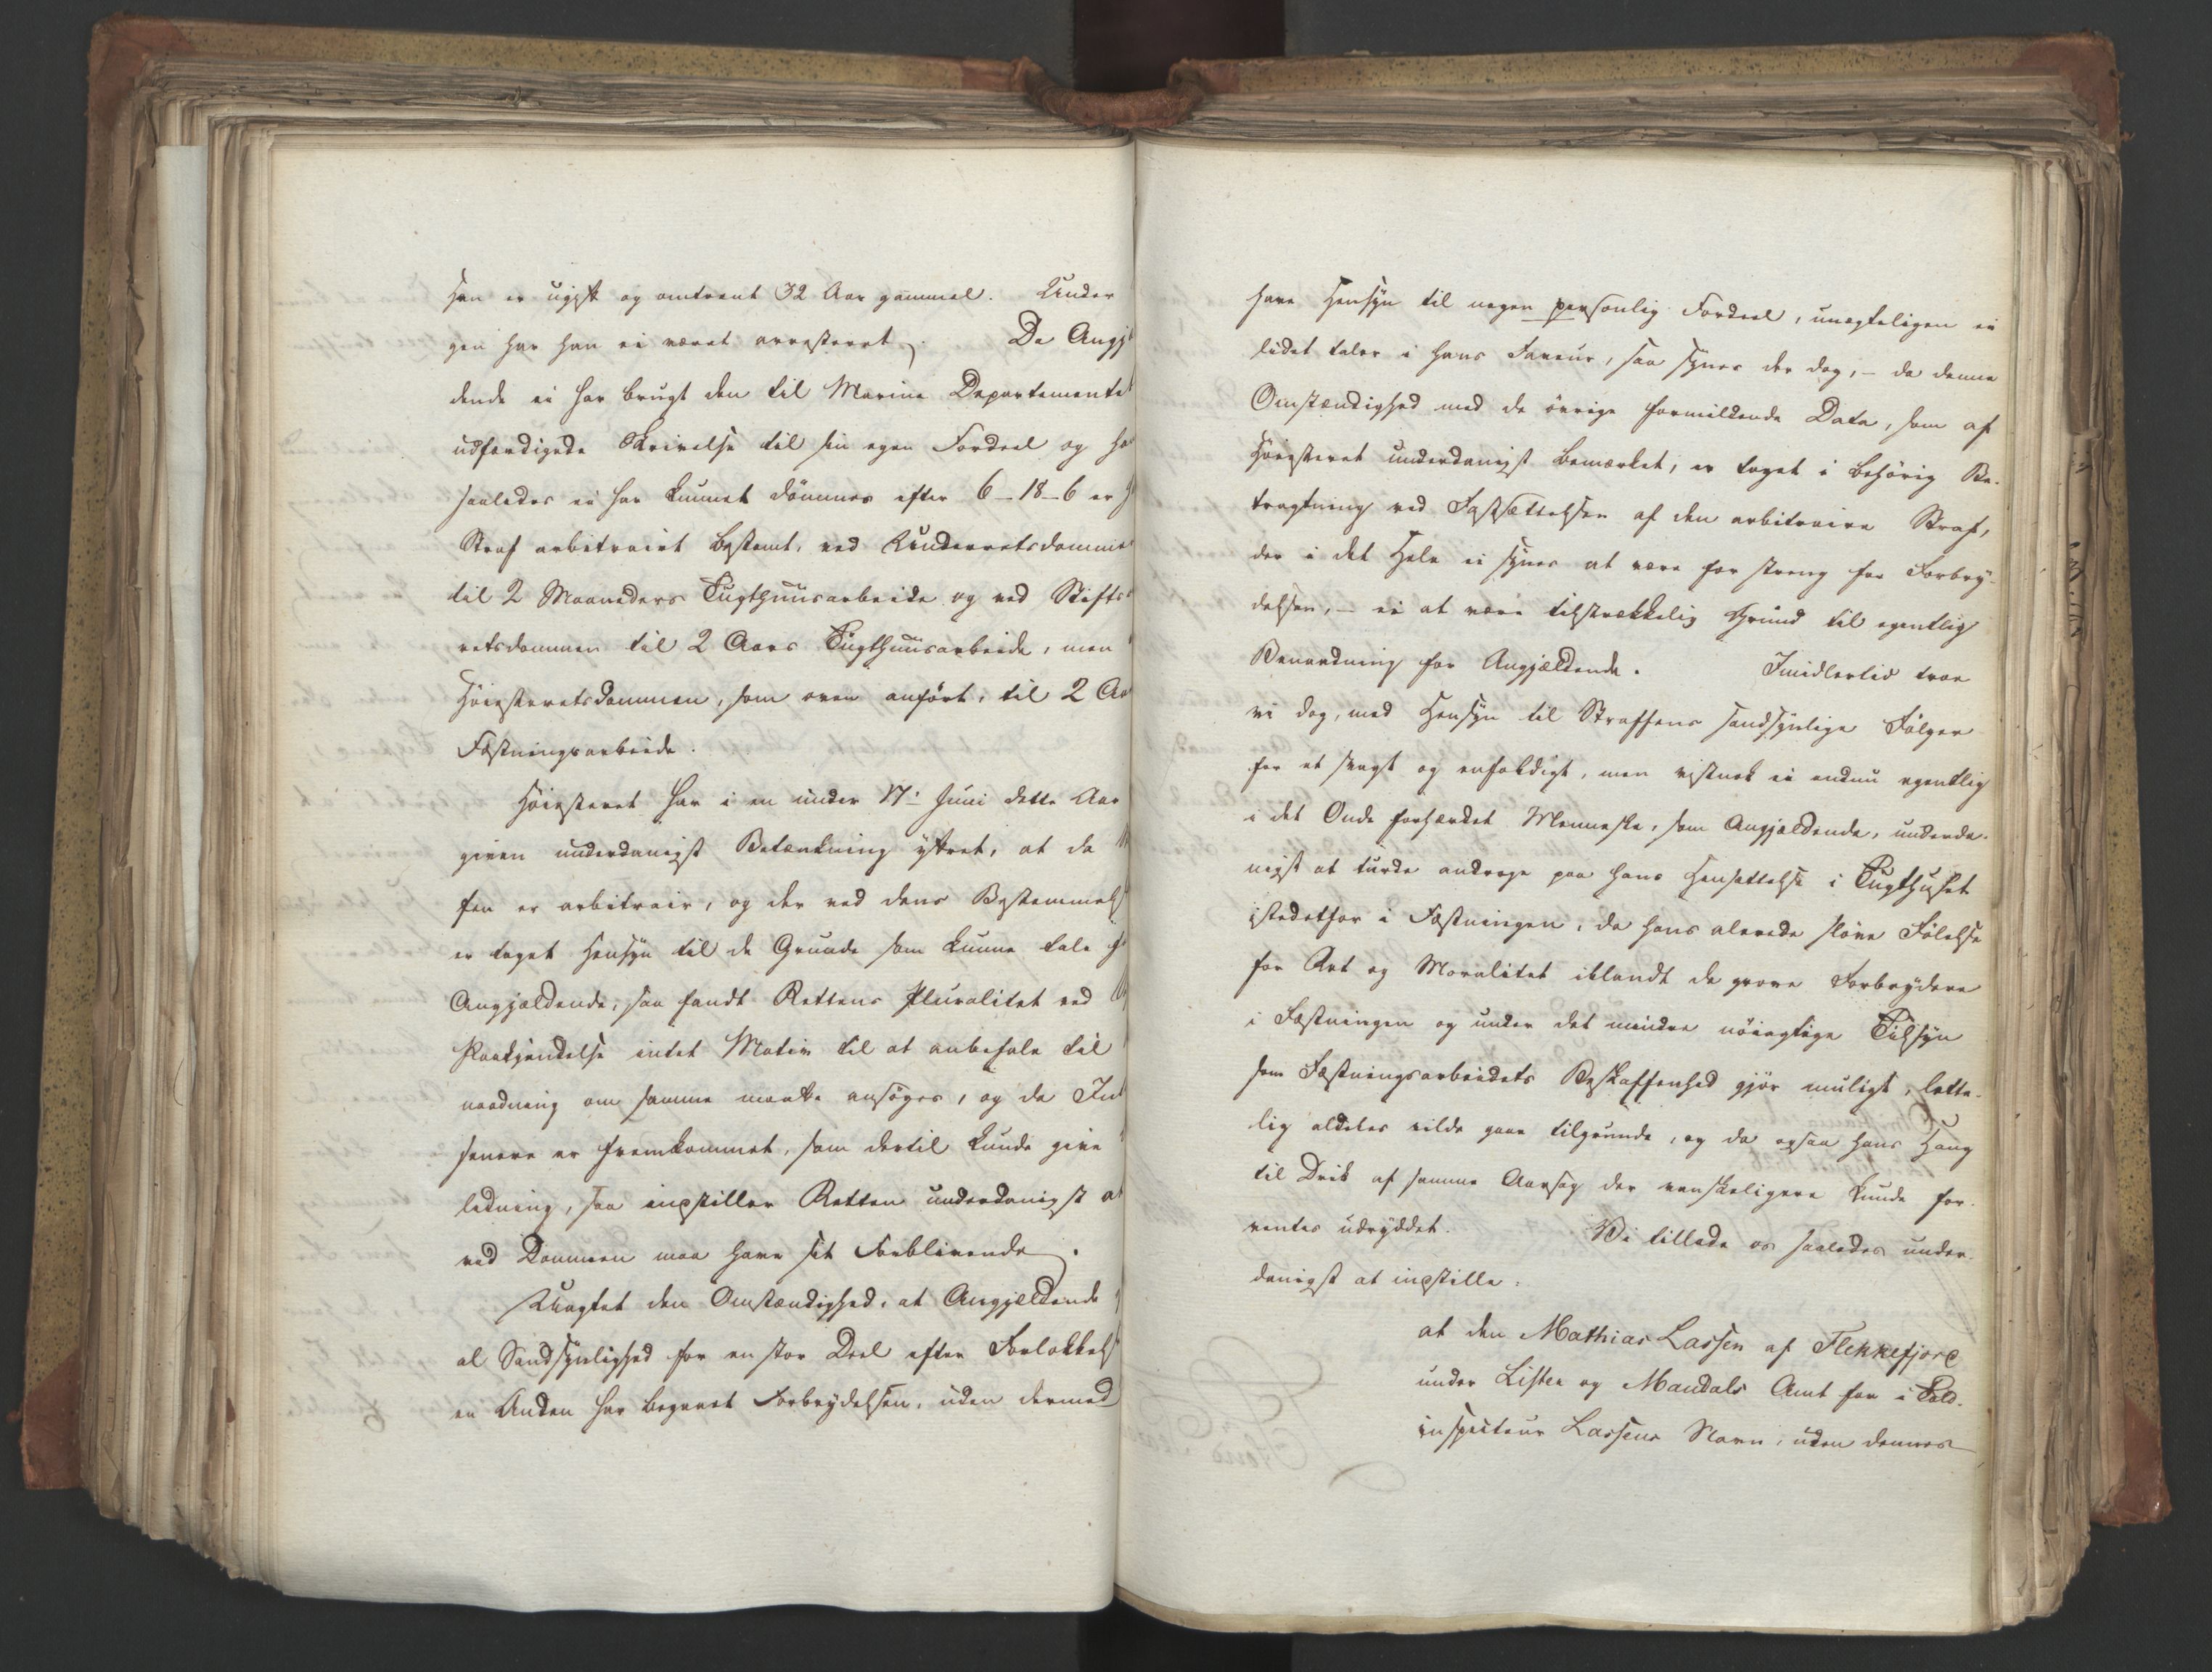 han er ugift og omtrent 32 Aar gammel. Under
gen har han ei været arresteret. Da Angj
dende ei har brugt den til Marine Departementet
udfærdigede Skrivelse til sin egen Fordeel og ha
saaledes ei har kunnet dømmes efter 6-18-6 er h
Straf arbitrairt bestemt, ved Underretsdommen
til 2 Maaneders Tugthuusarbeide og ved Stifts
retsdommen til 2 Aars Tugthuusarbeide, men
Høiesteretsdommen, som oven anført, til 2 Aa
Fæstningsarbeide.
Høiesteret har i en under 17de Juni dette Aar
given underdanigst Betænkning yttret, at da
fen er arbitrair, og der ved dens Bestemmels
er taget Hensyn til de Grunde som kunne tale
Angjældende, saa fandt Rettens Pluralitet ved
Paakjendelse intet Motiv til at anbefale til
naadning om samme maatte ansøges, og da Int
senere er fremkommet, som dertil kunde give
ledning, saa inpstiller Retten underdanigst at
ved Dommen maa have sit Forblivende.
Uagtet den Omstændighed, at Angjældende
al Sandsynlighed for en stor Deel efter Forlokkels
en Anden har begaaet Forbrydelsen, uden dermed
have Hensyn til nogen personlig Fordeel, unegteligen ei
lidet taler i hans Faveur, saa synes der dog, - da denne
Omstændighed med de øvrige formildende Data, som af
Høiesteret underdanigst bemærket, er taget i behørig Be-
tragtning ved Fastsættelsen af den arbitraire Straf,
der i det Hele ei synes at være for streng for Forbry-
delsen, - ei at være tilstrækkelig Grund til egentlig
Benaadning for Angjældende. Imidlertid troe
vi dog, med Hensyn til Straffens sandsynlige Følger
for et svagt og enfoldigt, men vistnok ei endnu egentlig
i det Onde forhærdet Menneske, som Angjældende, underda-
nigst at turde andrage paa hans Hensættelse i Tugthuset
istedetfor i Fæstningen, da hans allerede sløve Følelse
for Ret og Moralitet iblandt de grove Forbrydere
i Fæstningen og under det mindre nøiagtige Tilsyn
som Fæstningsarbeidets Beskaffenhed gjør muligt, lette-
lig aldeles vilde gaae tilgrunde, og da ogsaa hans Hang
til Drik af samme Aarsag der vanskeligere kunde for-
ventes udryddet. Vi tillade os saaledes under-
danigst at inpstille:
at den Mathias Lassen af Flekkefjord
under Lister og Mandals Amt for i Told-
inspecteur Lassens Navn, uden dennes